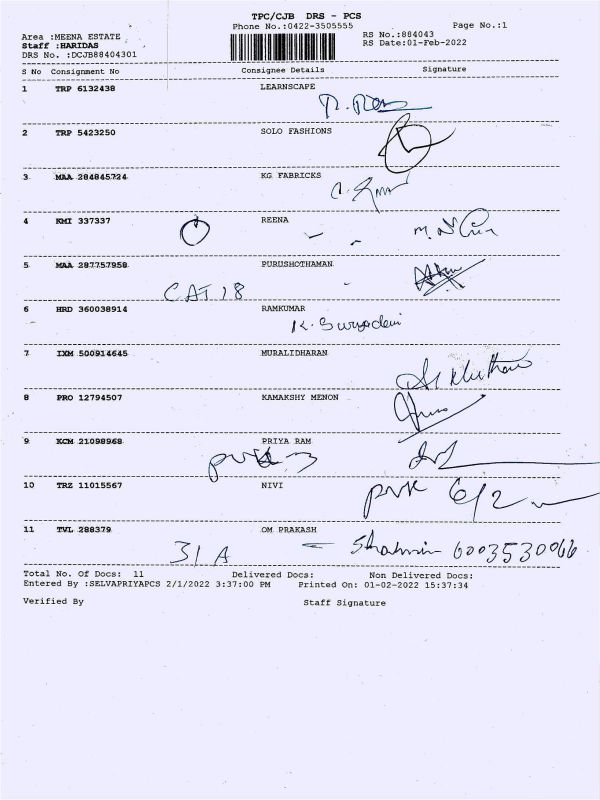 TPC/CJB DRS - PCS
Phone No.:0422-3505555 Page No.:1
Area :MEENA ESTATE RS No.:884043
Staff :HARIDAS RS Date:01-Feb-2022
DRS No. :DCJB88404301
S No Consignment No Consignee Details Signature
1 TRP 6132438 LEARNSCAPE
2 TRP 5423250 SOLO FASHIONS
3 MAA 284845724 KG FABRICS
4 KMI 337337 REENA
5 MAA 287757958 PURUSHOTHAMAN
CAT 18
6 HRD 360038914 RAMKUMAR
K. Suryadevi
7 IXM 500914645 MURALIDHARAN
8 PRO 12794507 KAMAKSHY MENON
9 KCM 21098968 PRIYA RAM
10 TRZ 11015567 NIVI
PVK 6/2
11 TVL 288379 OM PRAKASH
31 A 6003530066
Total No. Of Docs: 11 Delivered Docs: Non Delivered Docs:
Entered By :SELVAPRIYAPCS 2/1/2022 3:37:00 PM Printed On: 01-02-2022 15:37:34
Verified By Staff Signature